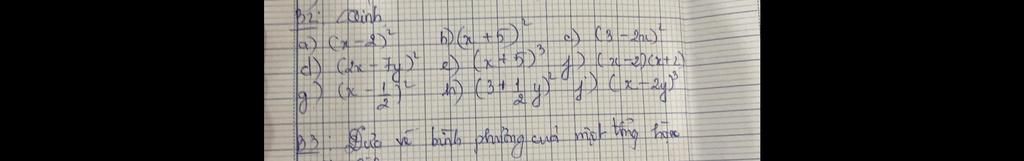 B2: Tính
a) (x-2)² b) (x+5)² c) (3-2x)²
d) (2x-7y)² e) (x+5)³ f) (x-2)(x+2)
g) (x-1/2)² h) (3+1/2 y)² j) (x-2y)³
B3: Đưa về bình phương của một tổng